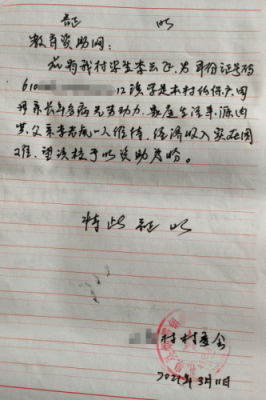 证 明
教育资助网：
兹有我村学生李云飞，身份证号码
610 12 该学生本村低保户因
母亲长年多病无劳动力，家庭生活来源由
其父亲李 一人维持，经济收入实在困
难，望该核予以资助为盼。
特此证明
村村委会
2021年3月11日